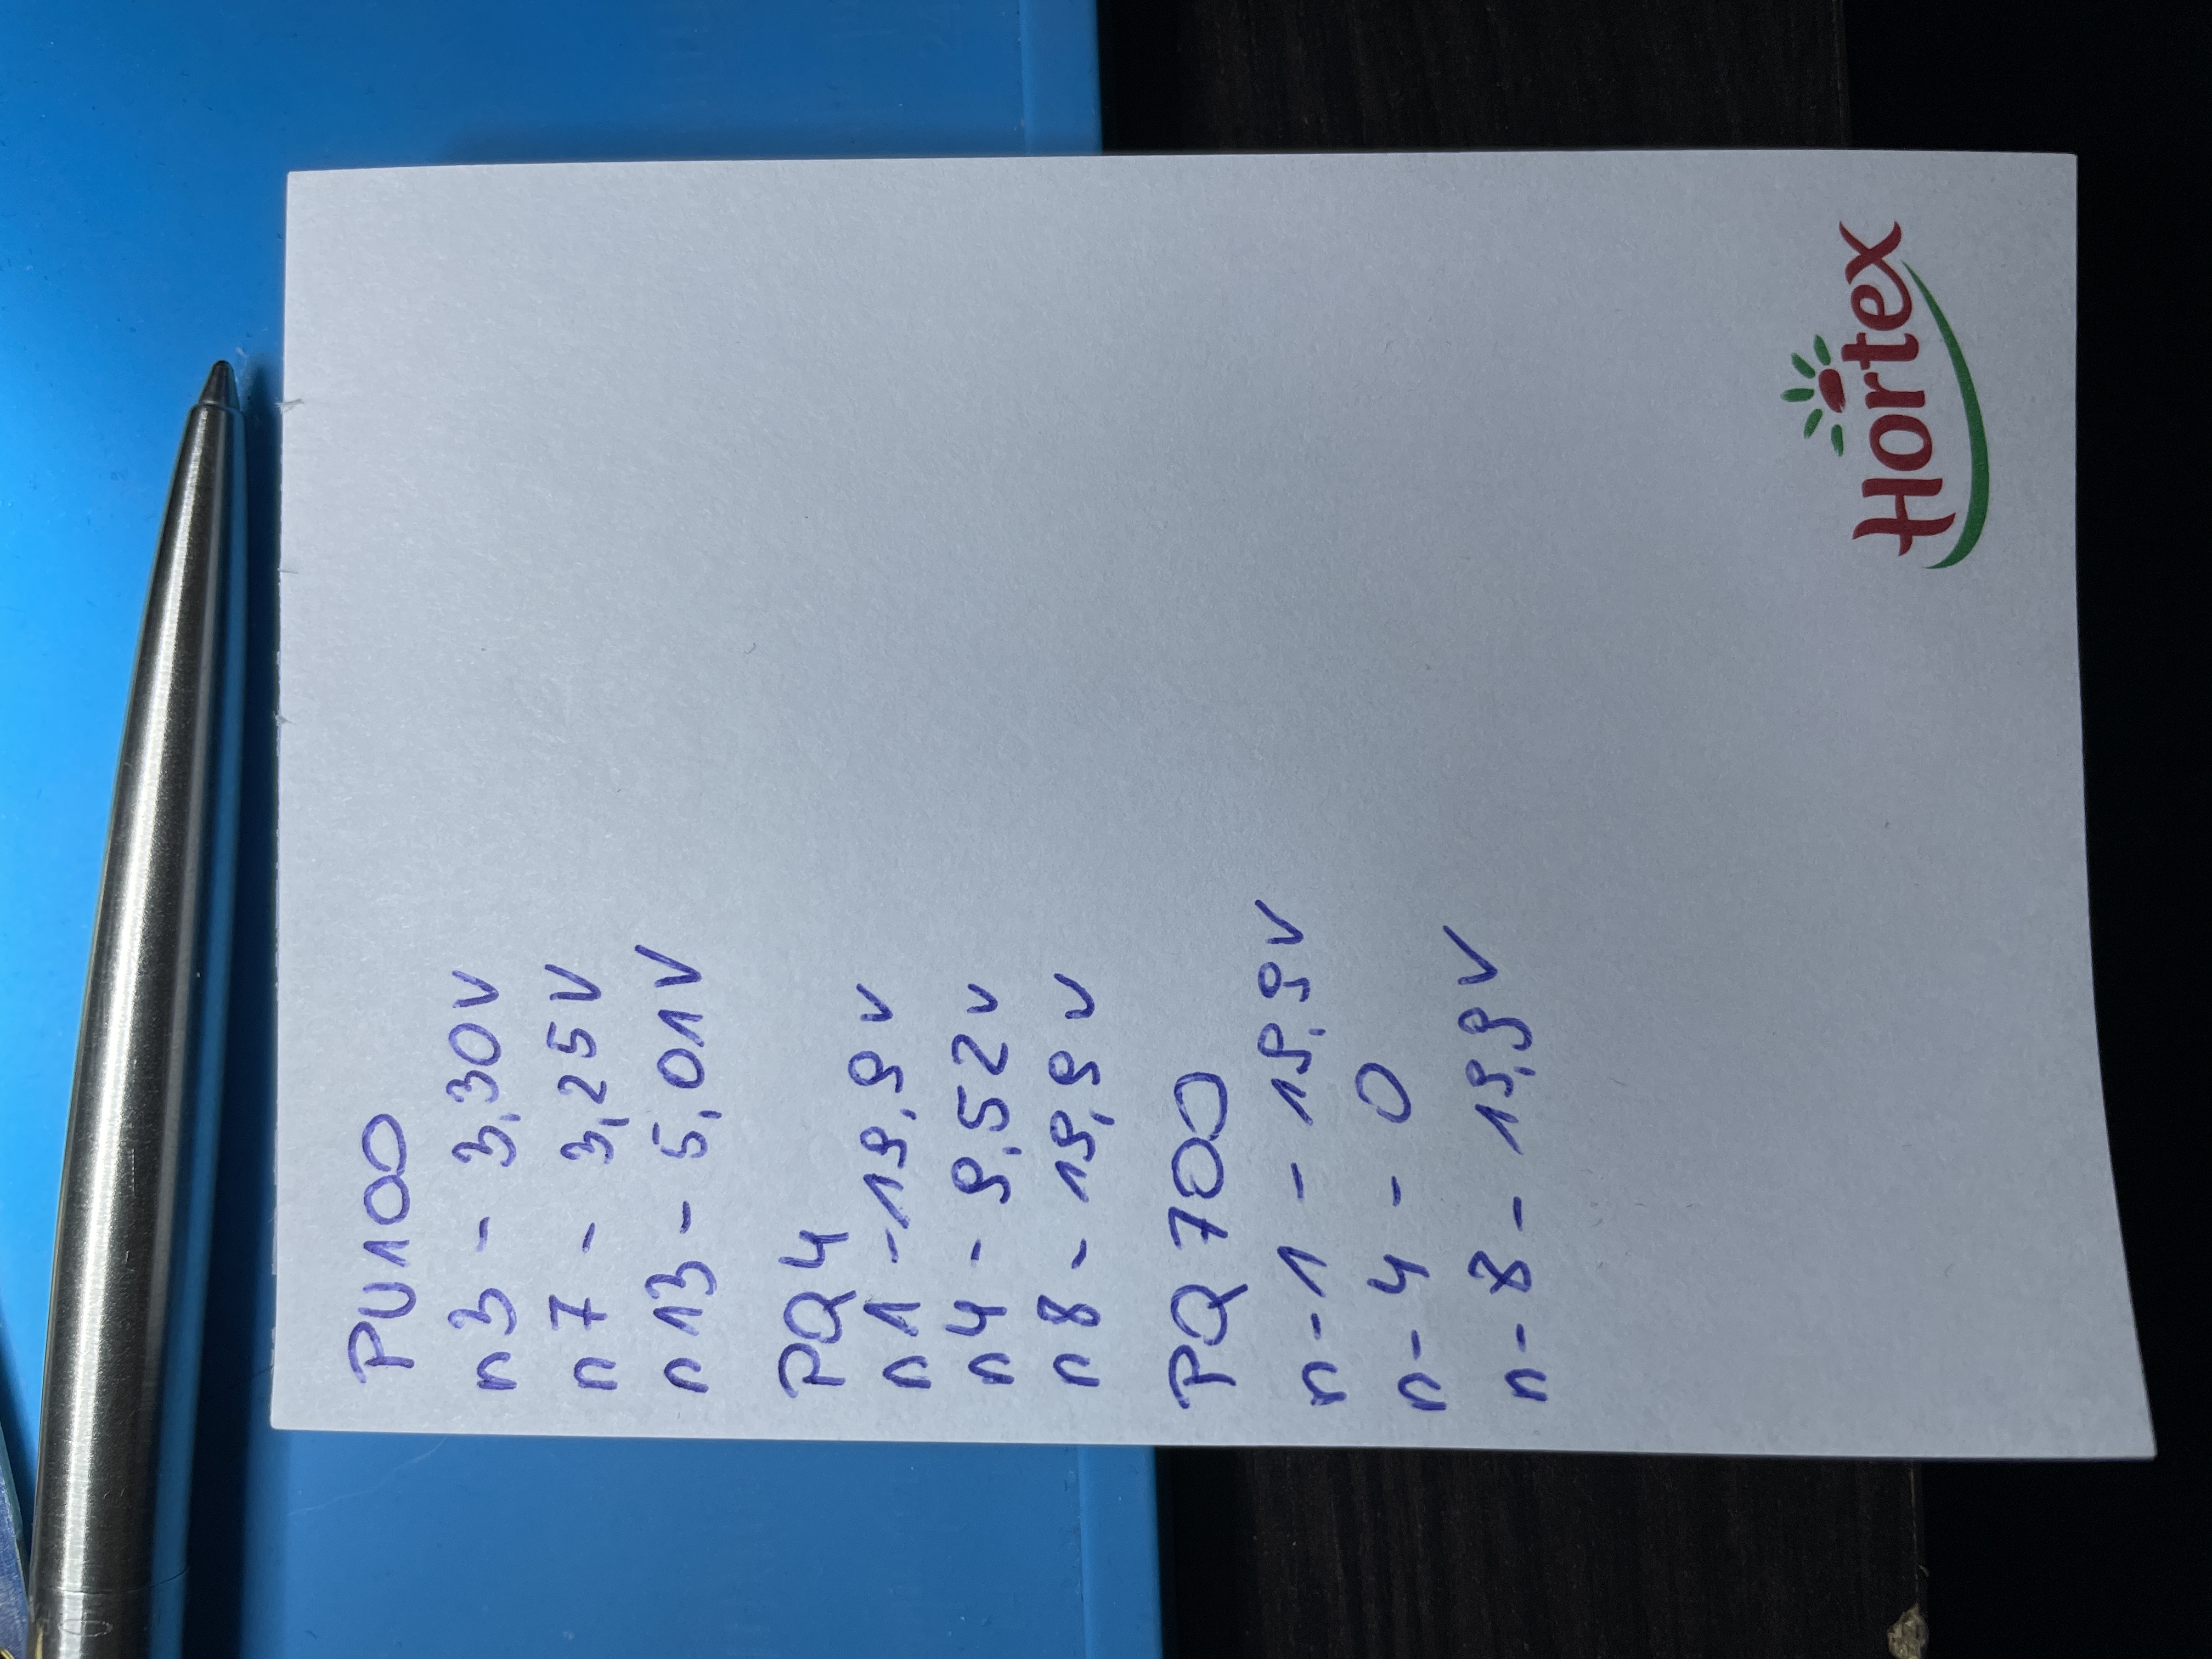 PU100
n3 - 3,30V
n7 - 3,25V
n13 - 5,01V
PQ4
n1 - 19,9V
n4 - 9,52V
n8 - 19,9V
PQ700
n-1 - 19,9V
n-4 - 0
n-8 - 19,9V
Hortex